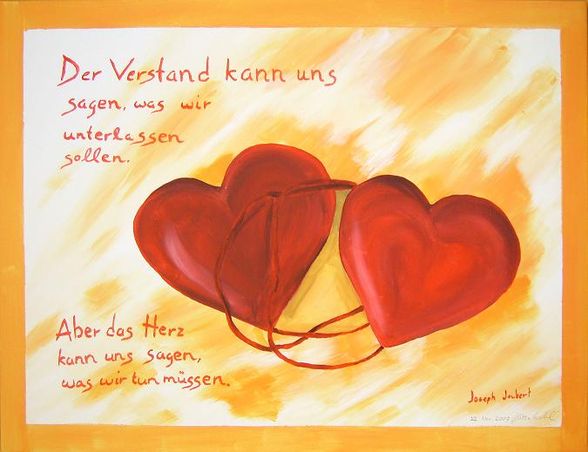 Der Verstand kann uns
sagen, was wir
unterlassen
sollen.
Aber das Herz
kann uns sagen,
was wir tun müssen.
Joseph Joubert
22. Nov. 2007